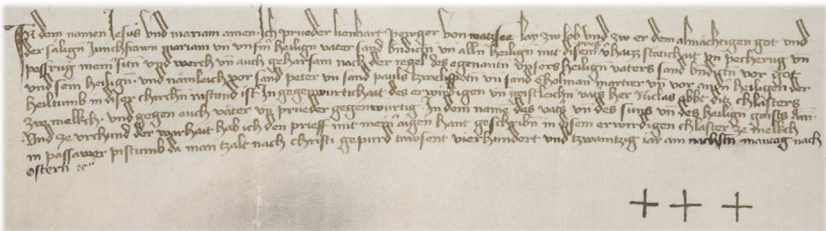 In dem namen Jesus vnd mariam amen Ich prueder lienhart Perger von matsee lay zw lob vnd zw er dem almachtigen got vnd
der salign Junchfrawn mariam vn vnsm heilign vater sand bndictn vn alln heilign mit disem v̈haizz statichait vn pecherug vn
pessrug meinr sitn vnd werch vn̄ auch gehorsam nach der regel des egenantn vnsers heilign vaters sand bndictn vor got
vnd sein heilign vnd namleich vor sand peter vn sand pauls zwelifpotn vn sand Cholman martrer vn vor andn heiligen der
heiltumb in diser chirchn rastund ist In gegenwurtichait des erwirdigen vn geistleichn vatrs her Niclas abbt ditz chlosters
zw mellkch vnd gegen auch väter vn prueder gegenwurtig In dem name des vats vn des suns vn des heilign gaists Am̄
Vnd ze vrchund der warhait hab ich den prieff mit meinr aigen hant geschribn in disem erwirdigen chloster ze mellkch
in passawer pistumb da man tzalt nach christi gepurd tawsent vierhundert vnd tzwaintzig iar am nachstn mantag nach
ostern ec